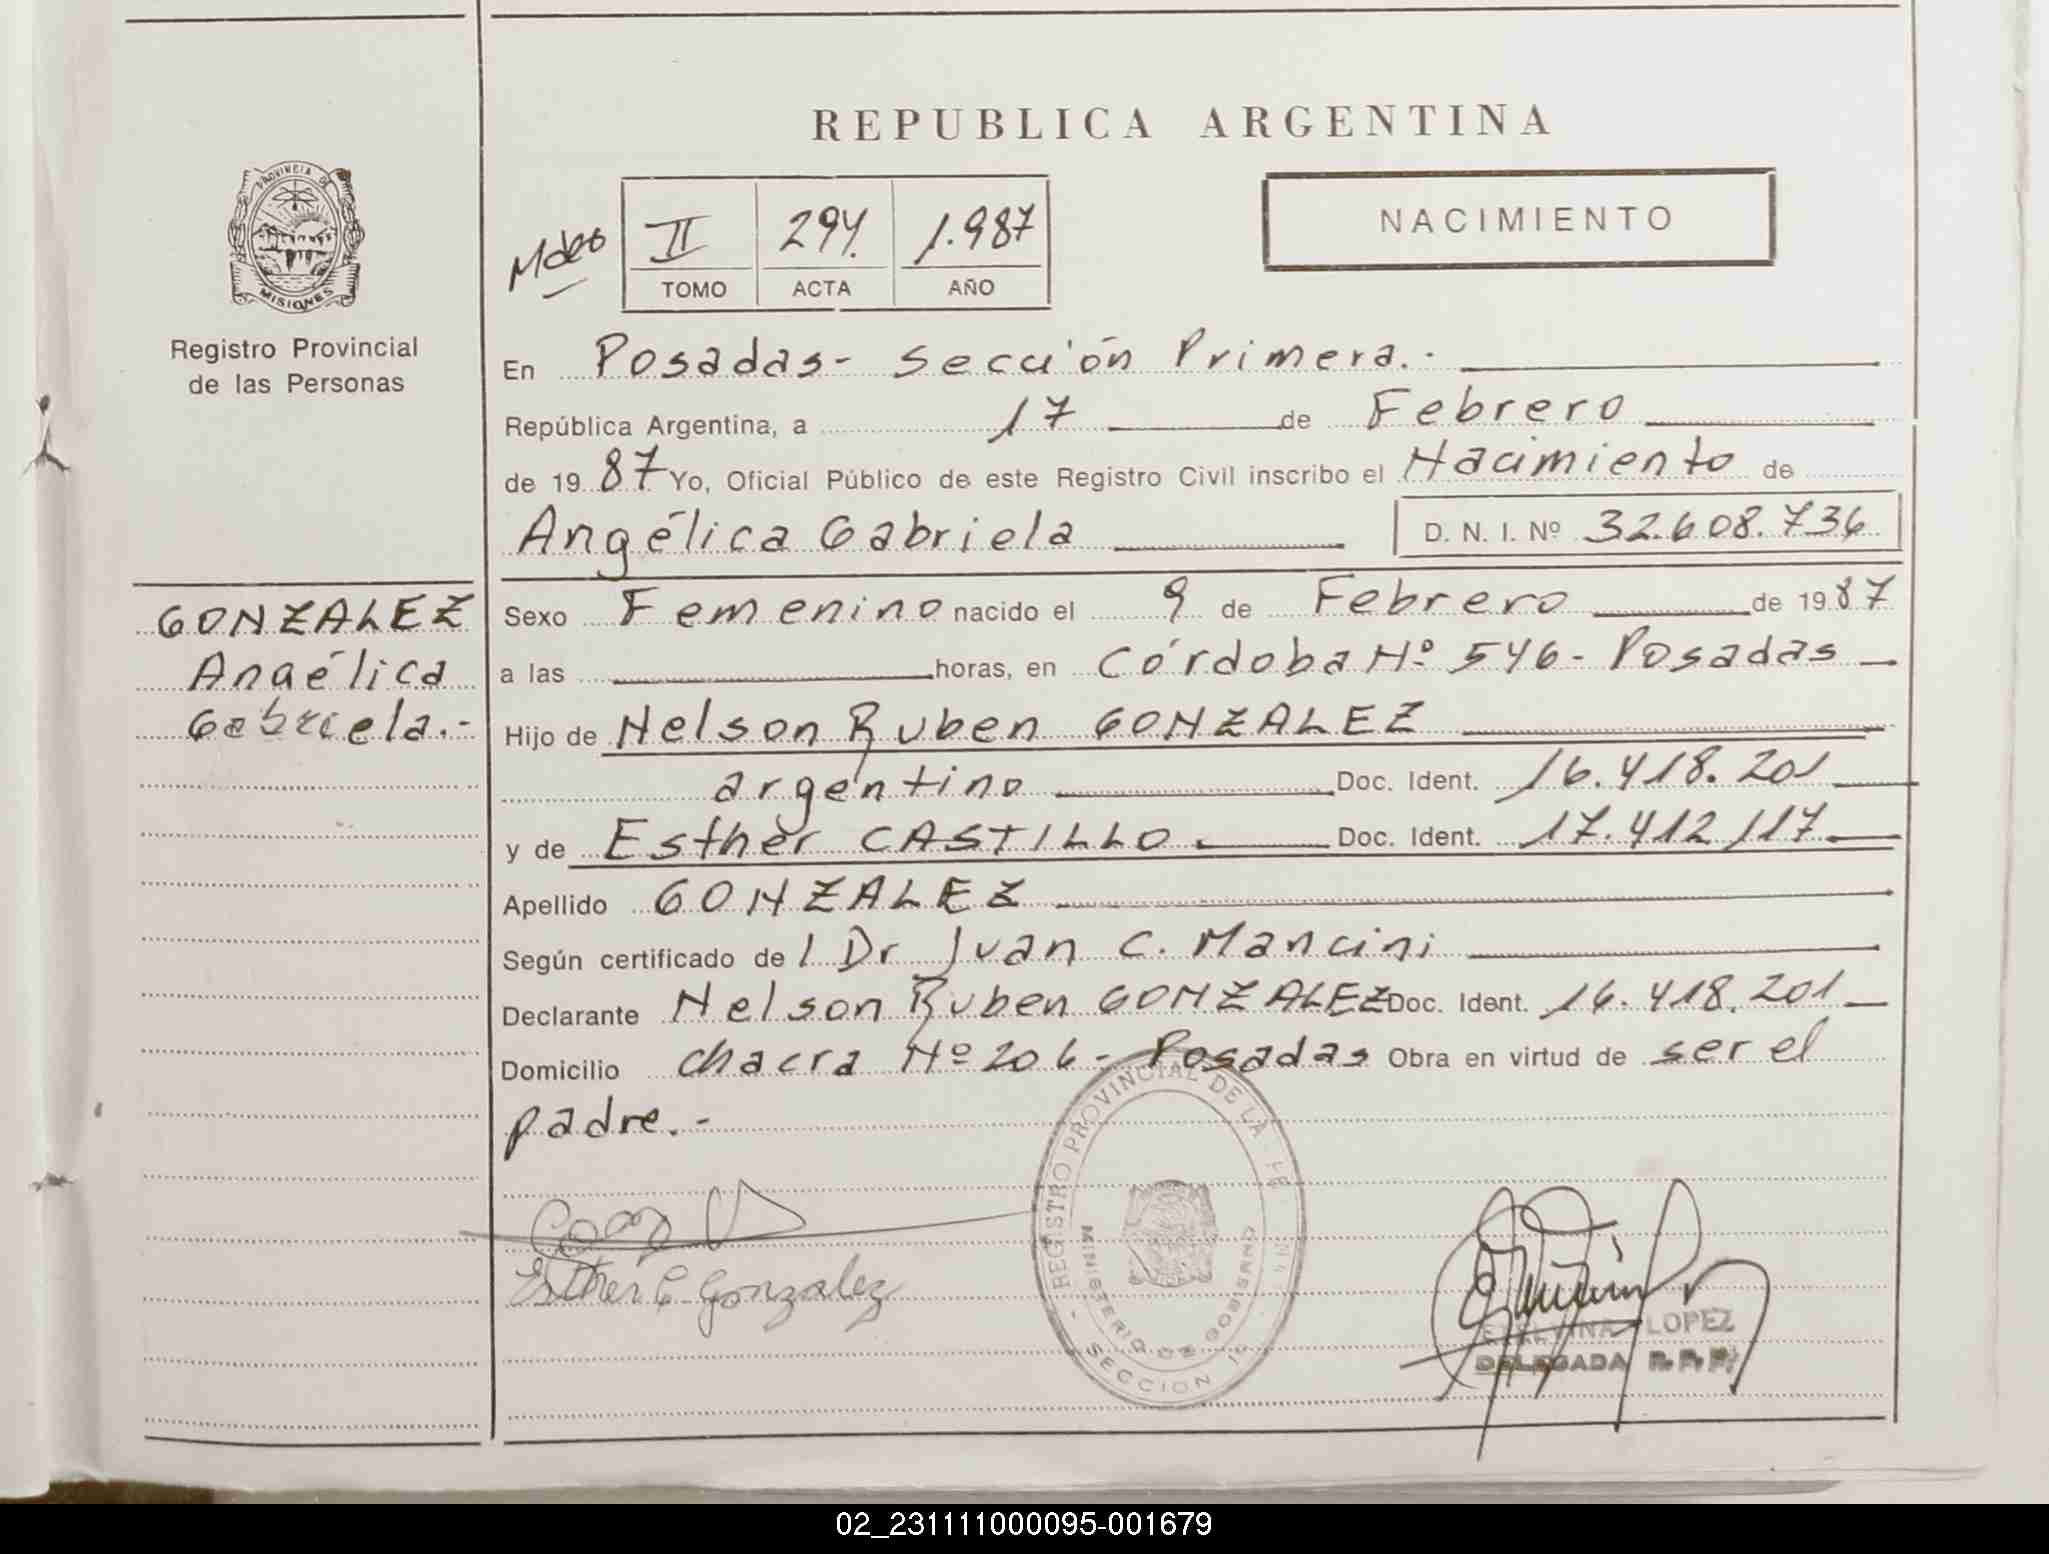 REPUBLICA ARGENTINA
PROVINCIA DE
MISIONES
Registro Provincial
de las Personas
II 294. 1.987
TOMO ACTA AÑO
NACIMIENTO
En Posadas- Sección Primera.-
República Argentina, a 17 de Febrero
de 1987 Yo, Oficial Público de este Registro Civil inscribo el Nacimiento de
Angélica Gabriela D. N. I. Nº 32.608.736
GONZALEZ
Angélica
Gabriela.-
Sexo Femenino nacido el 9 de Febrero de 1987
a las horas, en Córdoba Nº 546- Posadas
Hijo de Nelson Ruben GONZALEZ
argentino Doc. Ident. 16.418.201
y de Esther CASTILLO. Doc. Ident. 17.412.117.
Apellido GONZALEZ
Según certificado de l Dr Juan C. Mancini
Declarante Nelson Ruben GONZALEZ Doc. Ident. 16.418.201
Domicilio chacra Nº 206- Posadas Obra en virtud de ser el
padre.-
Esther C Gonzalez
REGISTRO PROVINCIAL DE LA
MINISTERIO DE GOBIERNO
SECCION
LOPEZ
DELEGADA
02_231111000095-001679